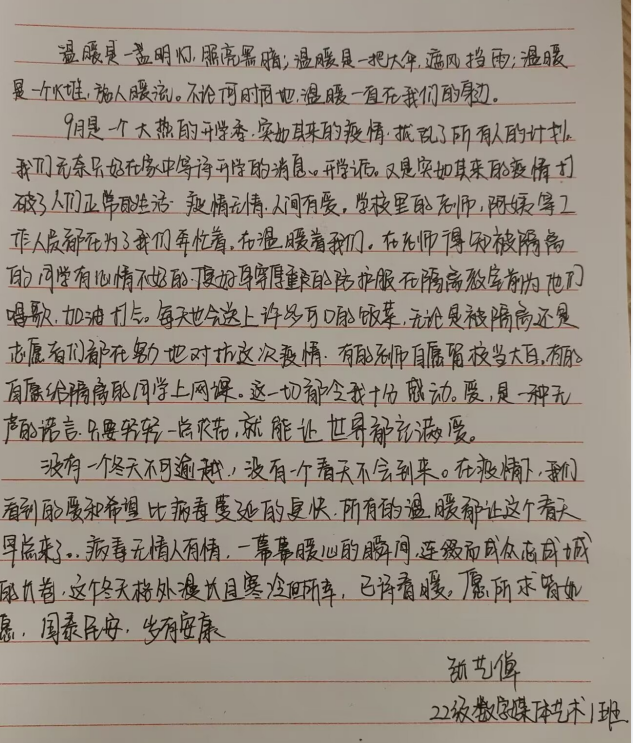 温暖是一盏明灯,照亮黑暗;温暖是一把大伞,遮风挡雨;温暖
是一个火堆,施人暖流。不论何时何地,温暖一直在我们的身边。
9月是一个大热的开学季,突如其来的疫情,扰乱了所有人的计划,
我们无奈只好在家中等待开学的消息。开学后。又是突如其来的疫情打
破了人们正常的生活。疫情无情,人间有爱。学校里的老师,阿姨等工
作人员都在为了我们奔忙着,在温暖着我们。在老师得知被隔离
的同学有心情不好的,便好身穿厚重的防护服在隔离教室前为他们
唱歌,加油打气。每天也会送上许多可口的饭菜,无论是被隔离还是
志愿者们都在努力地对抗这次疫情。有的老师自愿留校当大白,有的
自愿给隔离的同学上网课。这一切都令我十分感动。爱,是一种无
声的语言,只要轻轻一点水花,就能让世界都充满爱。
没有一个冬天不可逾越,没有一个春天不会到来。在疫情下,我们
看到的爱和希望比病毒蔓延的更快,所有的温暖都让这个春天
早点来了。病毒无情人有情,一幕幕暖心的瞬间,连缀而成众志成城
的力量,这个冬天格外漫长且寒冷但所幸,已待春暖。愿所求皆如
愿,国泰民安,岁有安康
22级数字媒体艺术1班